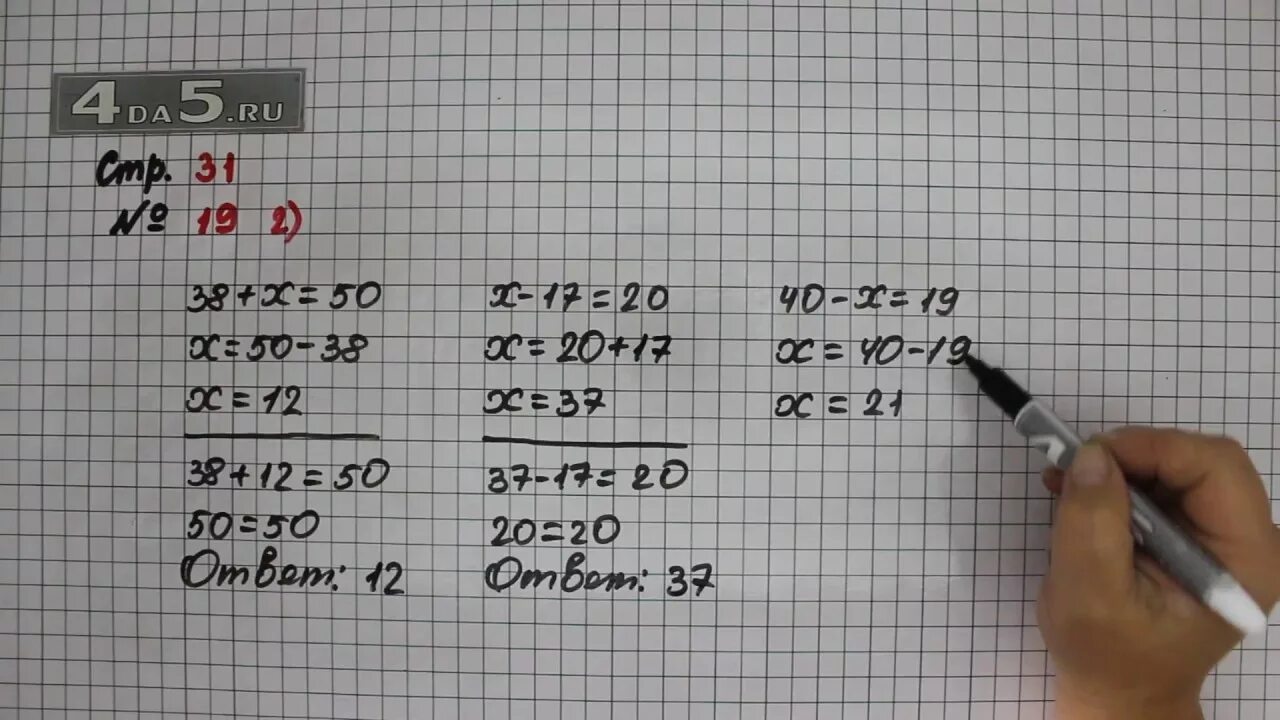 4DA5.RU
Стр. 31
№ 19 2)
38+x=50
x=50-38
x=12
38+12=50
50=50
Ответ: 12
x-17=20
x=20+17
x=37
37-17=20
20=20
Ответ: 37
40-x=19
x=40-19
x=21